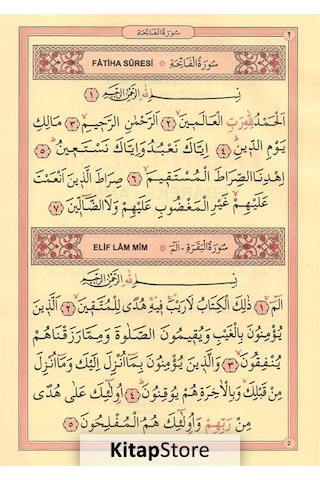 سُورَةُ الْفَاتِحَةِ ٢
FÂTİHA SÛRESİ سُورَةُ الْفَاتِحَةِ
بِسْمِ اللّٰهِ الرَّحْمٰنِ الرَّحِيمِ ١
اَلْحَمْدُ لِلّٰهِ رَبِّ الْعَالَمِينَ ٢ اَلرَّحْمٰنِ الرَّحِيمِ ٣ مَالِكِ
يَوْمِ الدِّينِ ٤ اِيَّاكَ نَعْبُدُ وَاِيَّاكَ نَسْتَعِينُ ٥
اِهْدِنَا الصِّرَاطَ الْمُسْتَقِيمَ ٦ صِرَاطَ الَّذِينَ اَنْعَمْتَ
عَلَيْهِمْ غَيْرِ الْمَغْضُوبِ عَلَيْهِمْ وَلَا الضَّالِّينَ ٧
ELİF LÂM MÎM سُورَةُ الْبَقَرَةِ - الٓمٓ
بِسْمِ اللّٰهِ الرَّحْمٰنِ الرَّحِيمِ
الٓمٓ ١ ذٰلِكَ الْكِتَابُ لَا رَيْبَ فِيهِ هُدًى لِلْمُتَّقِينَ ٢ اَلَّذِينَ
يُؤْمِنُونَ بِالْغَيْبِ وَيُقِيمُونَ الصَّلٰوةَ وَمِمَّا رَزَقْنَاهُمْ
يُنْفِقُونَ ٣ وَالَّذِينَ يُؤْمِنُونَ بِمَٓا اُنْزِلَ اِلَيْكَ وَمَٓا اُنْزِلَ
مِنْ قَبْلِكَ وَبِالْاٰخِرَةِ هُمْ يُوقِنُونَ ٤ اُولٰٓئِكَ عَلٰى هُدًى
مِنْ رَبِّهِمْ وَاُولٰٓئِكَ هُمُ الْمُفْلِحُونَ ٥
2
KitapStore